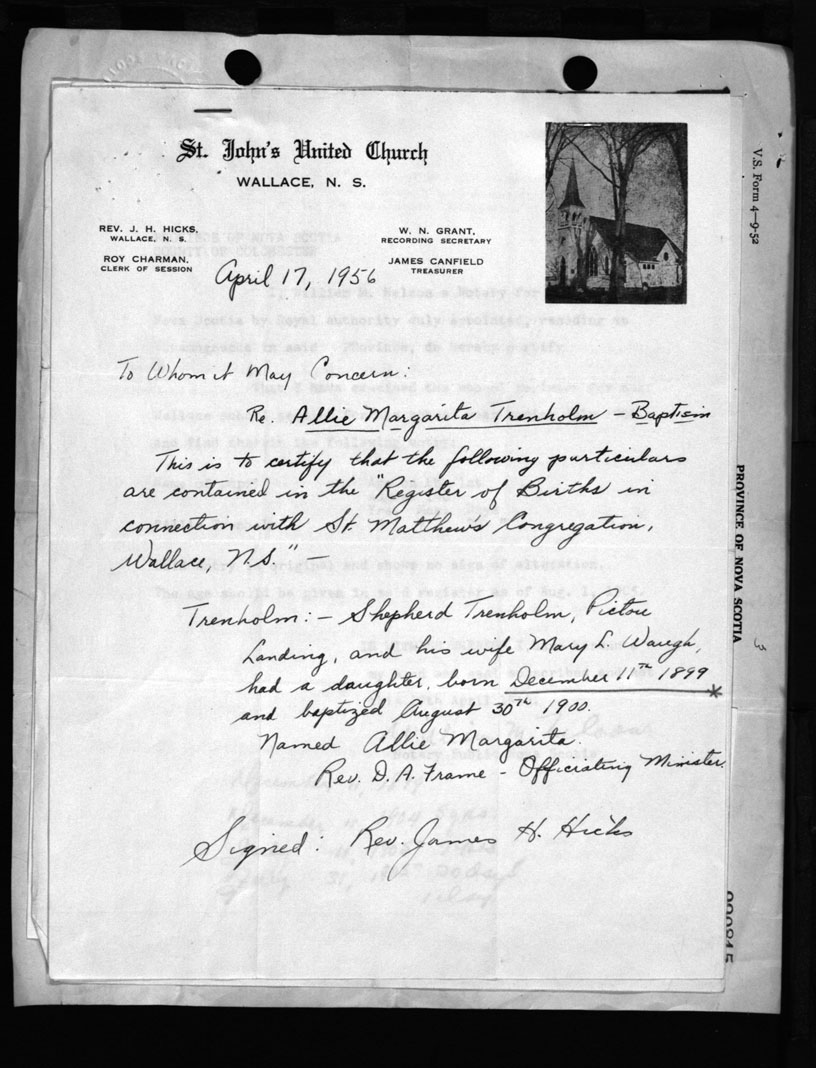 St. John's United Church
WALLACE, N. S.
REV. J. H. HICKS,
WALLACE, N. S.
ROY CHARMAN,
CLERK OF SESSION
W. N. GRANT,
RECORDING SECRETARY
JAMES CANFIELD
TREASURER
April 17, 1956
To Whom it May Concern:
Re. Allie Margarita Trenholm – Baptism
This is to certify that the following particulars
are contained in the "Register of Births in
connection with St. Matthew's Congregation,
Wallace, N.S." –
Trenholm: – Shepherd Trenholm, Pictou
Landing, and his wife Mary L. Waugh,
had a daughter, born December 11th 1899 *
and baptized August 30th 1900.
Named Allie Margarita.
Rev. D. A. Frame – Officiating Minister.
Signed: Rev. James H. Hicks
V.S. Form 4—9-52
PROVINCE OF NOVA SCOTIA
3